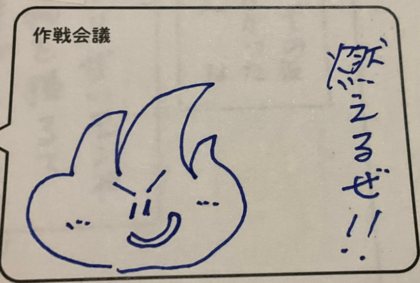 作戦会議
燃えるぜ!!